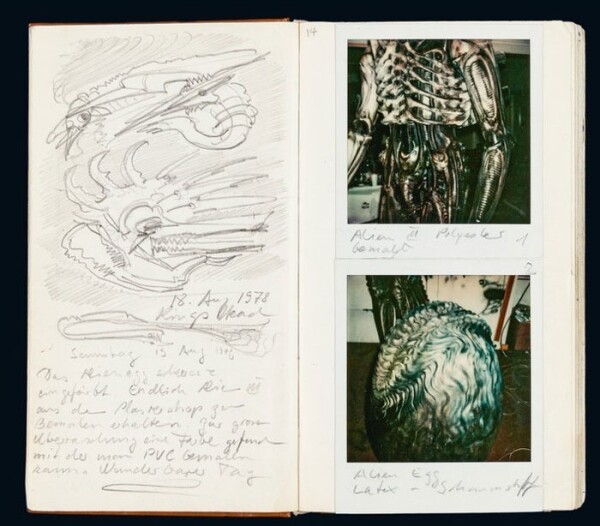 18. Aug 1978
Kings Head
Sonntag 13 Aug 1978
Das Alienegg schwarz
eingefärbt Endlich Alien III
aus der Plastershop zum
Bemalen erhalten. Zur grossen
Überraschung eine Farbe gefunden
mit der man PVC bemalen
kann. Wunderbarer Tag
14
Alien III Polyester 1
bemalt
2
Alien Egg
Latex - Schaumstoff